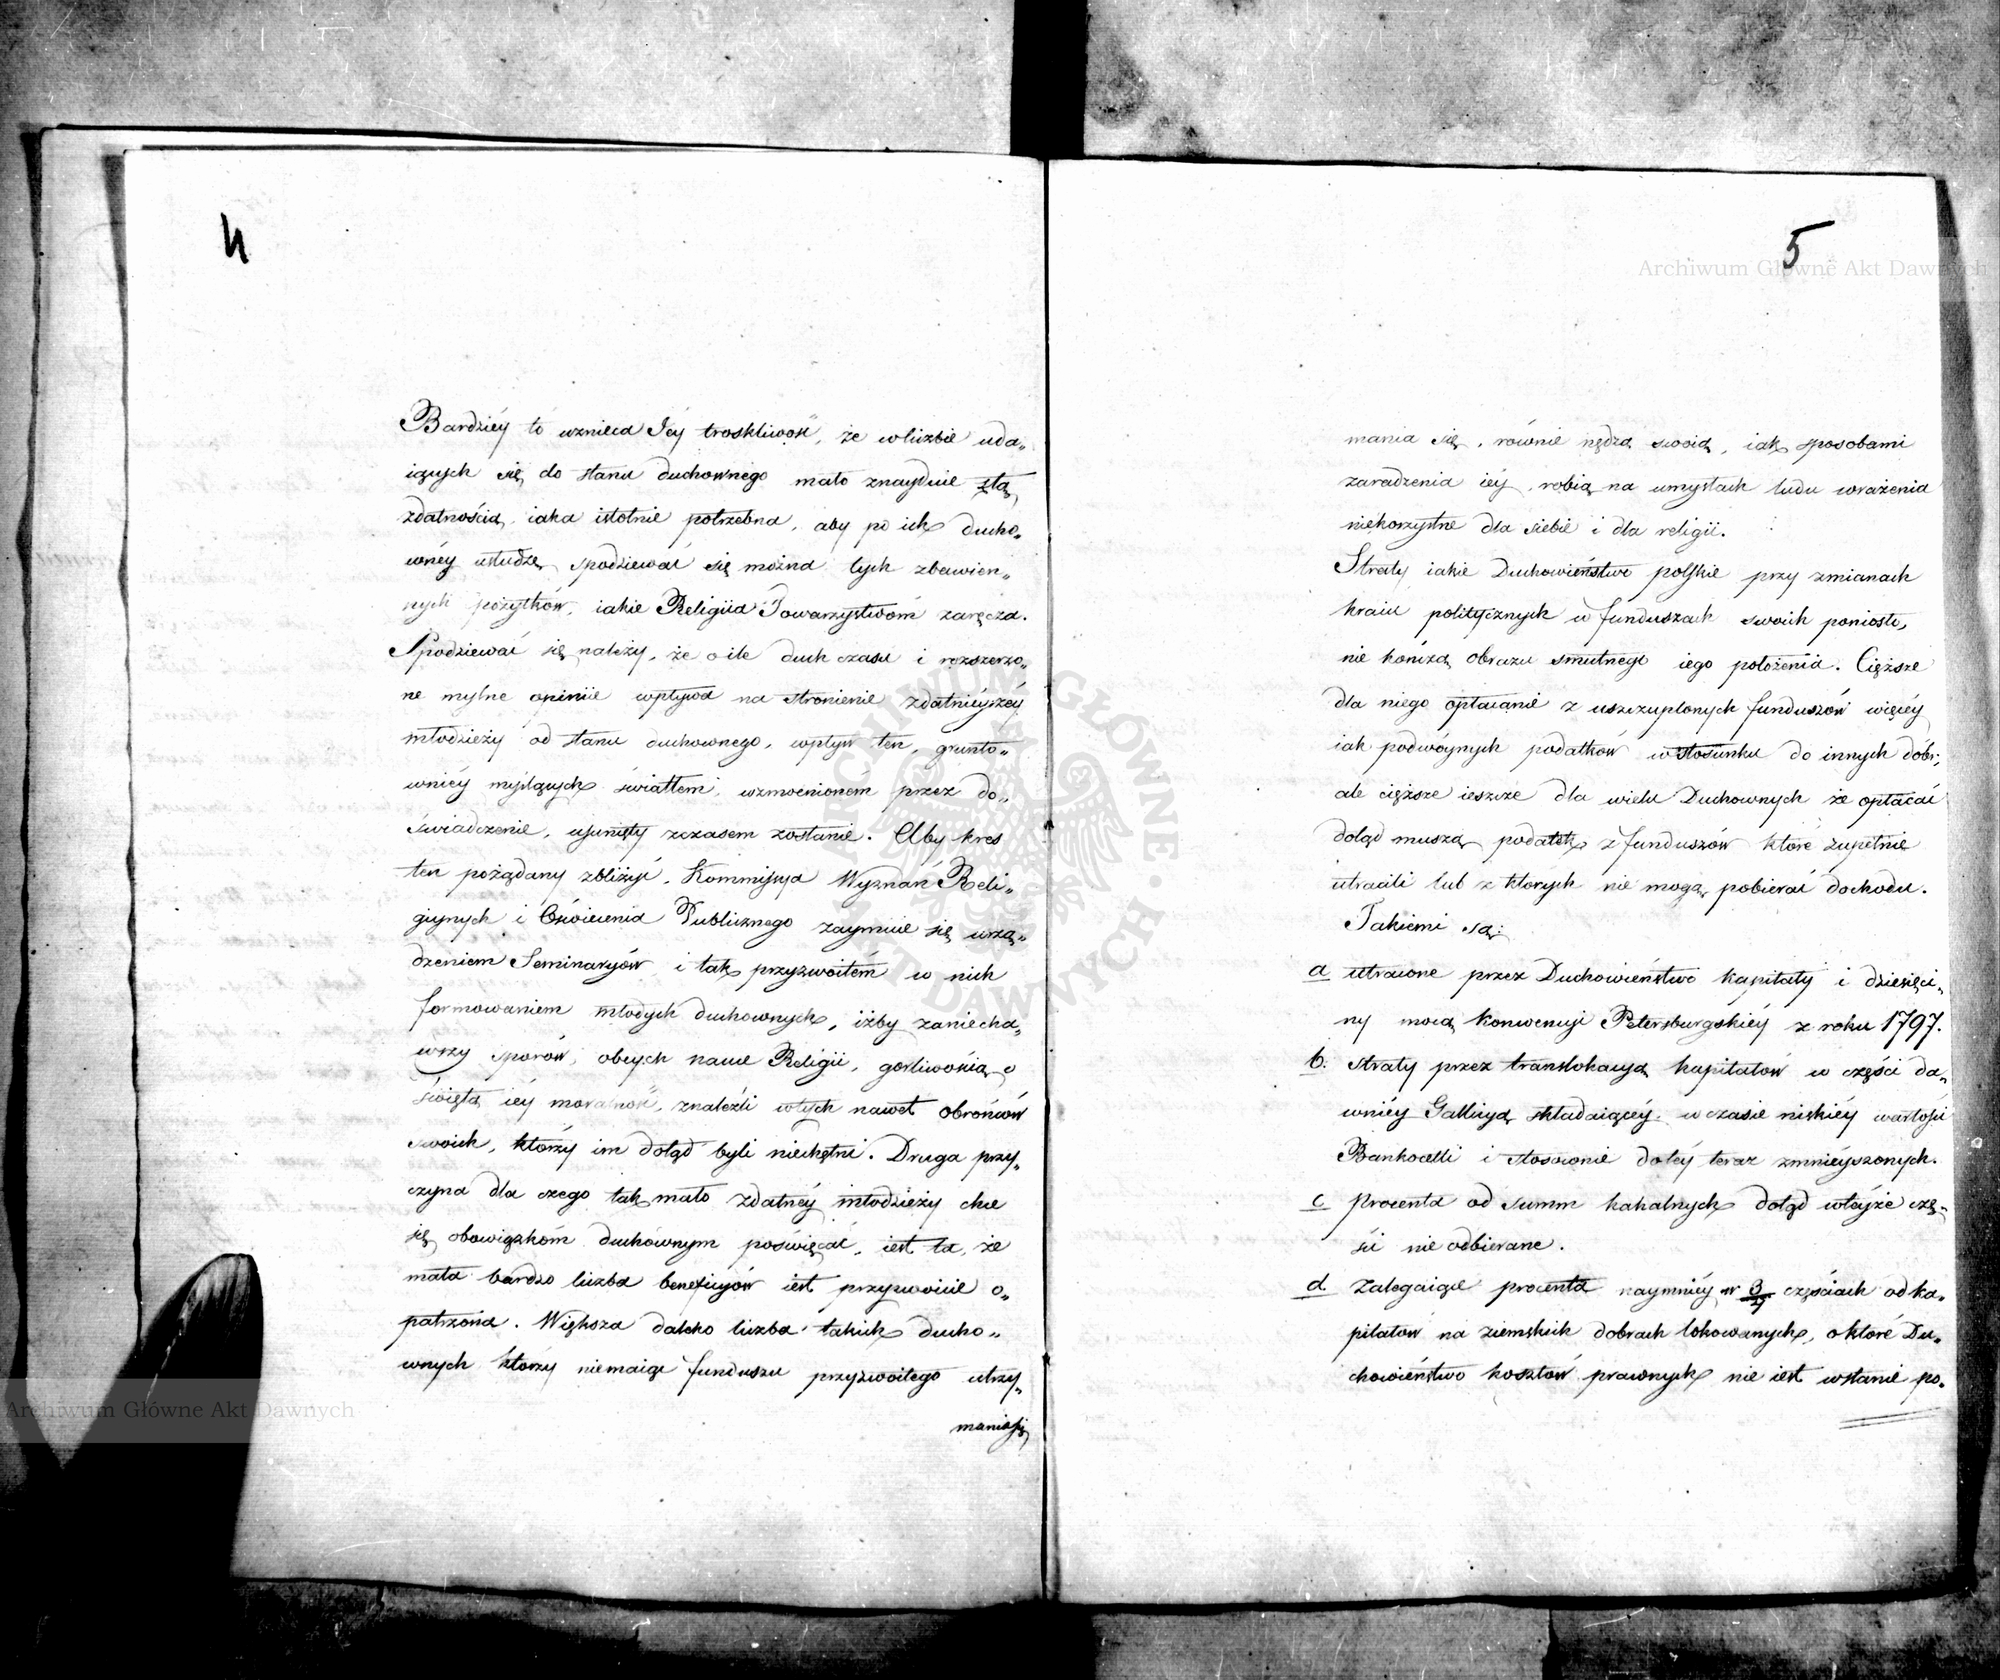 4
Bardziéy to wznieca Jéy troskliwość, że w liczbie uda„
iących się do stanu duchownego mało znayduie z tą
zdatnością, iaka istotnie potrzebna, aby po ich ducho„
wnéy usłudze, spodziewać się można tych zbawien„
nych pożytków, iakie Religiia Towarzystwóm zaręcza.
Spodziewać się należy, że o ile duch czasu i rozszerzo„
ne mylne opiniie wpływa na stronienie zdatniéyszéy
młodzieży od stanu duchownego, wpływ ten, grunto„
wniéy myślących światłem, wzmocnioném przez do„
świadczenie, usunięty zczasem zostanie. Aby kres
ten pożądany zbliżyć, Kommissya Wyznań Reli„
giynych i Oświecenia Publicznego zaymuie się urzą„
dzeniem Seminaryów, i tak przyzwoitém w nich
formowaniem młodych duchownych, iżby zaniecha„
wszy sporów, obcych nauce Religii, gorliwością o
świętą iéy moralność, znaleźli w tych nawet obrońców
swoich, którzy im dotąd byli niechętni. Druga przy„
czyna dla czego tak mało zdatnéy młodzieży chce
się obowiązkóm duchównym poświęcać, iest ta, że
mała bardzo liczba beneficyów iest przyzwoicie o„
patrzona. Większa daleko liczba takich ducho„
wnych którzy niemaiąc funduszu przyzwoitego utrzy„
maniasię
5
mania się, równie nędzą swoią, iak sposobami
zaradzenia iéy, robią na umysłach ludu wrażenia
niekorzystne dla siebie i dla religii.
Straty iakie Duchowieństwo polskie przy zmianach
kraiu politycznych w funduszach swoich poniosło,
nie kończą obrazu smutnego iego położenia. Cięższe
dla niego opłacanie z uszczuplonych funduszów więcéy
iak podwóynych podatków w stosunku do innych dóbr,
ale cięższe ieszcze dla wielu Duchownych że opłacać
dotąd muszą podatek z funduszów które zupełnie
utracili lub z których nie mogą pobierać dochodu.
Takiemi są:
a utracone przez Duchowieństwo kapitały i dziesięci„
ny mocą konwencyi Petersburgskiéy z roku 1797.
b. straty przez translokacyą kapitałów w części da„
wniéy Gallicyą składaiącéy, w czasie niskiéy wartości
Bankocetli i stosownie do téy teraz zmnieyszonych.
c procenta od summ kahalnych dotąd w téyże czę„
ści nie odbierane.
d. zalegaiące procenta naymniéy w 3/4 częściach od ka„
pitałów na ziemskich dobrach lokowanych, o które Du„
chowieństwo kosztów prawnych nie iest w stanie po„
Archiwum Główne Akt Dawnych
Archiwum Główne Akt Dawnych
ARCHIWUM GŁÓWNE AKT DAWNYCH